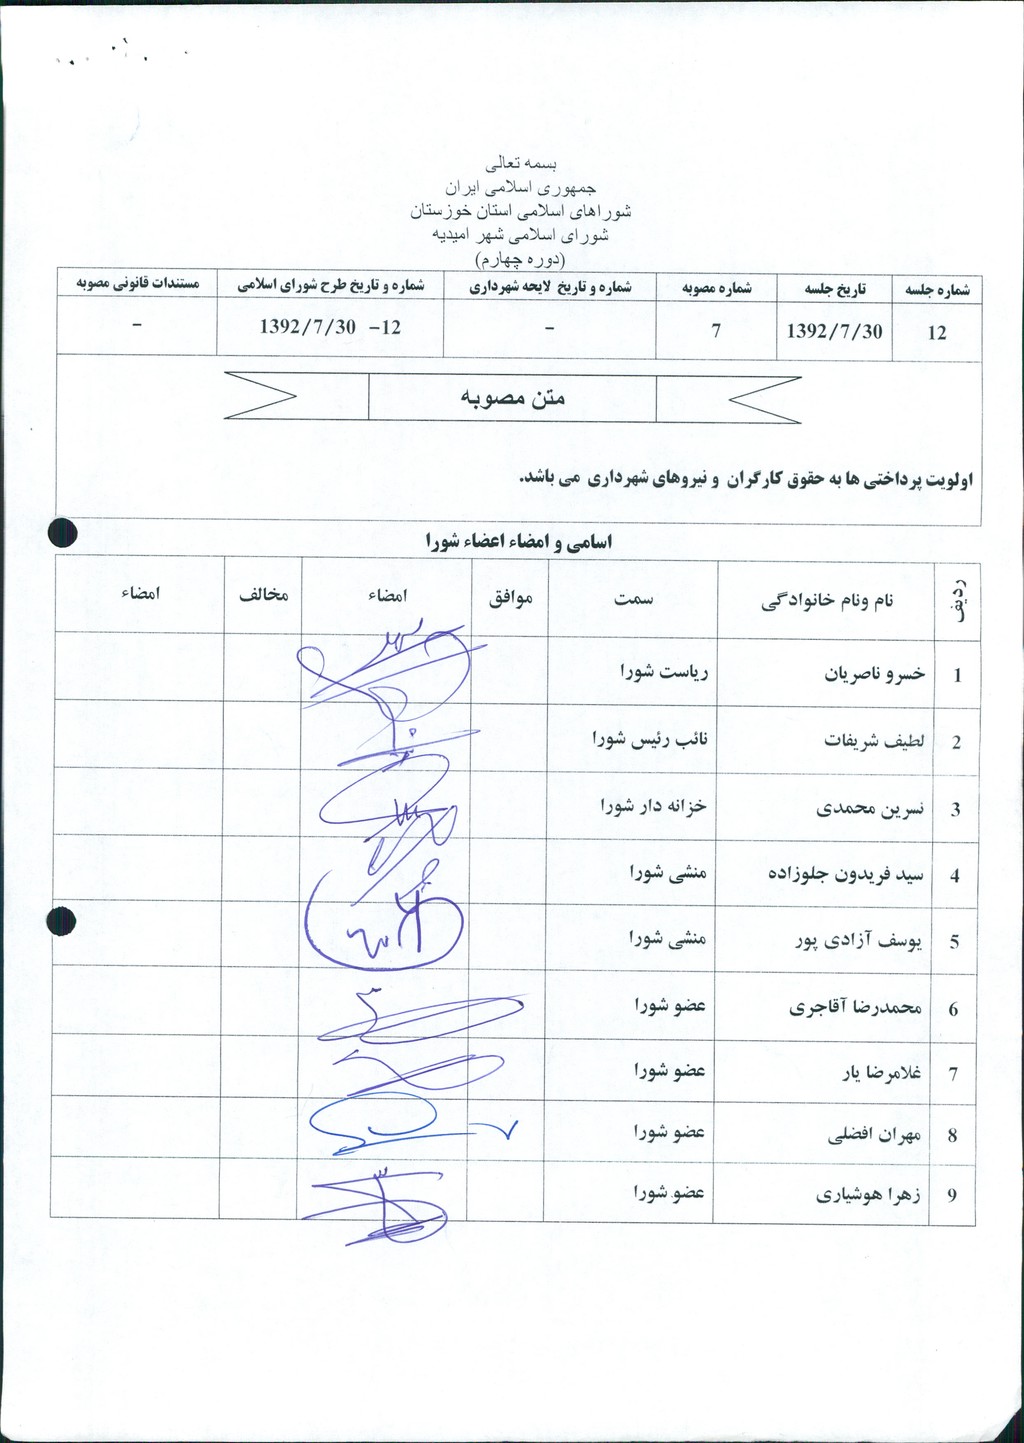 بسمه تعالی
جمهوری اسلامی ایران
شوراهای اسلامی استان خوزستان
شورای اسلامی شهر امیدیه
(دوره چهارم)
شماره جلسه تاریخ جلسه شماره مصوبه شماره و تاریخ لایحه شهرداری شماره و تاریخ طرح شورای اسلامی مستندات قانونی مصوبه
12 1392/7/30 7 - 12- 1392/7/30 -
متن مصوبه
اولویت پرداختی ها به حقوق کارگران و نیروهای شهرداری می باشد.
اسامی و امضاء اعضاء شورا
ردیف نام ونام خانوادگی سمت موافق امضاء مخالف امضاء
1 خسرو ناصریان ریاست شورا
2 لطیف شریفات نائب رئیس شورا
3 نسرین محمدی خزانه دار شورا
4 سید فریدون جلوزاده منشی شورا
5 یوسف آزادی پور منشی شورا
6 محمدرضا آقاجری عضو شورا
7 غلامرضا یار عضو شورا
8 مهران افضلی عضو شورا
9 زهرا هوشیاری عضو شورا